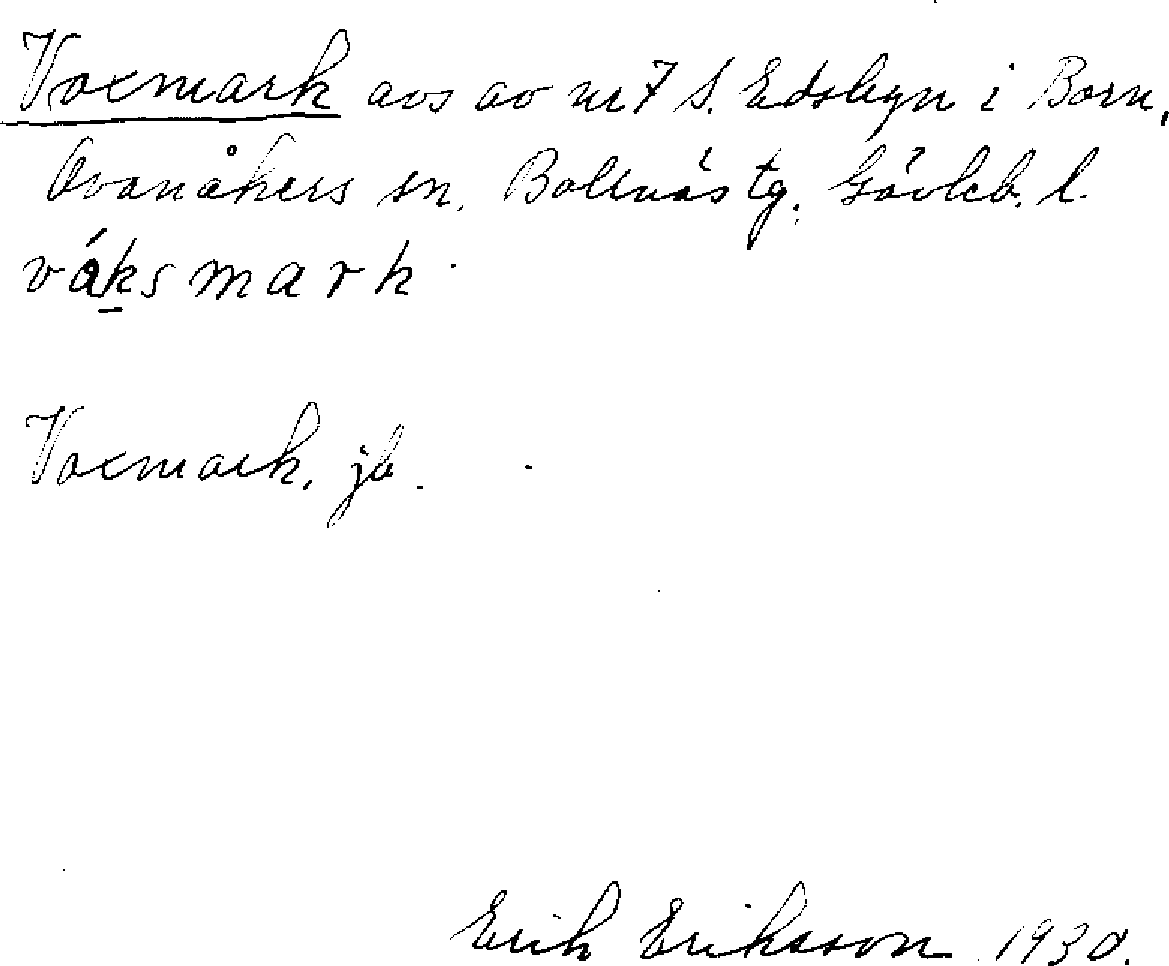 Voxmark avs av nr 7 S. Edsbyn i Born,
Ovanåkers sn. Bollnäs tg. Gävleb. l.
váksmark
Voxmark, jb.
Erik Eriksson 1930.